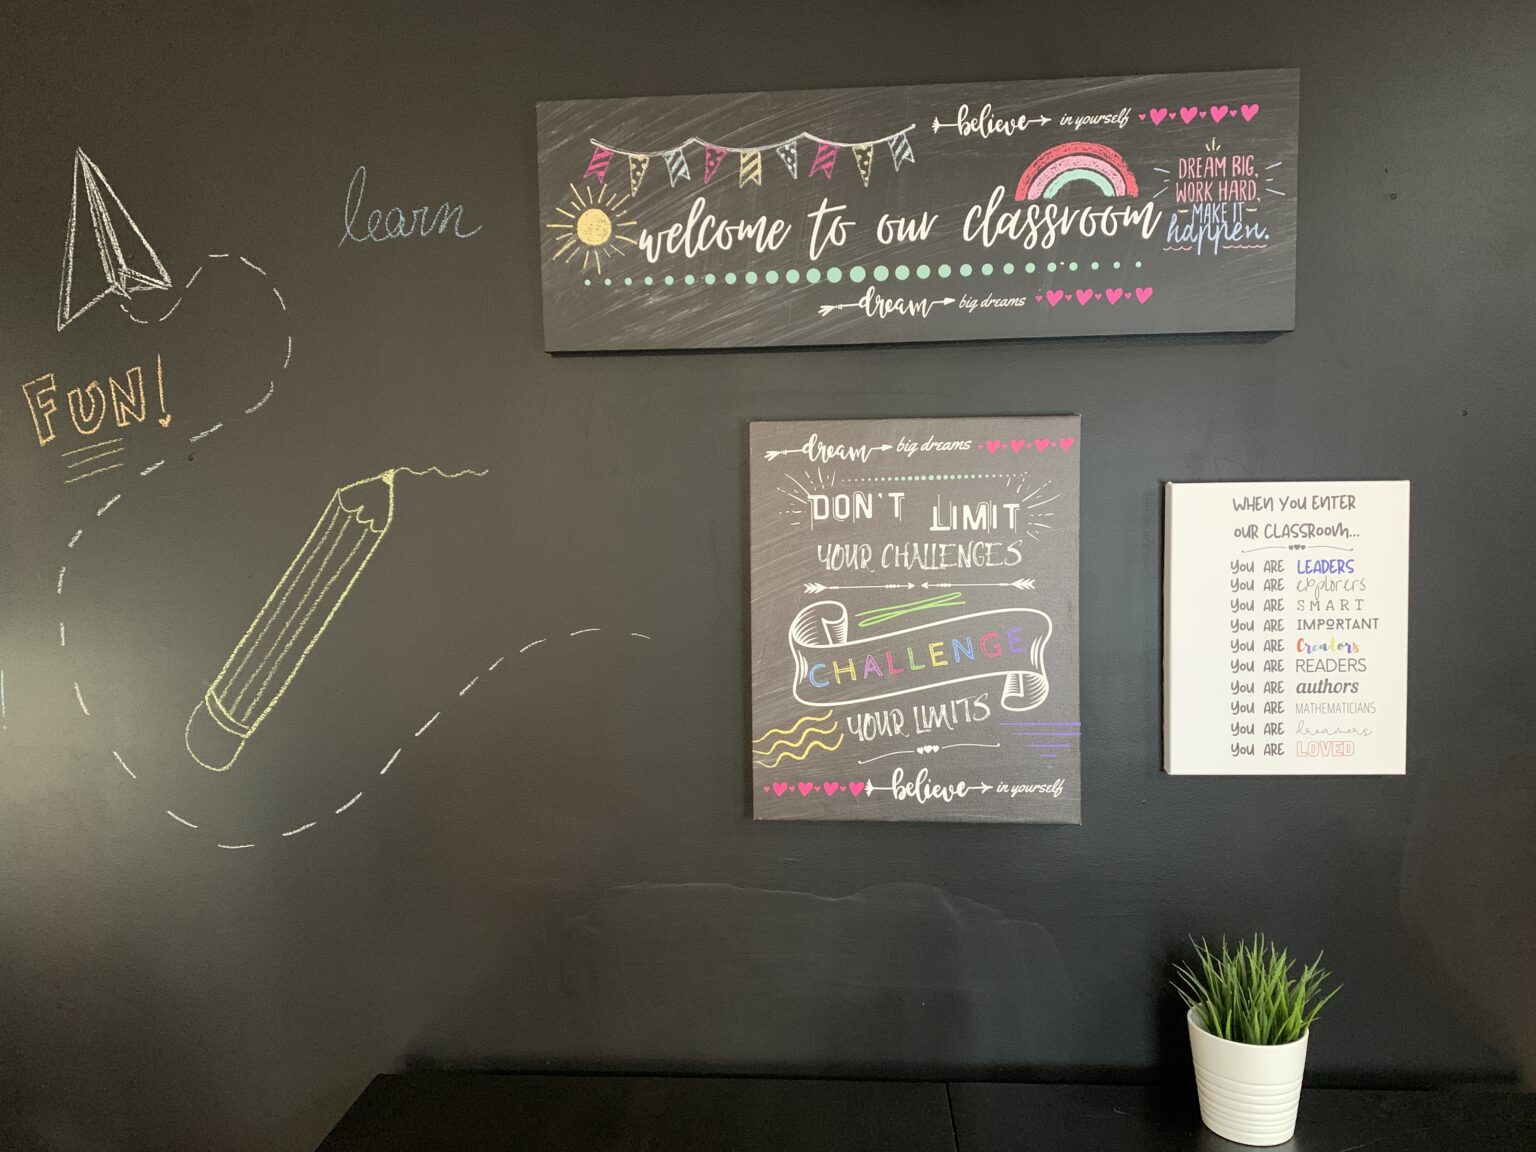 learn
FUN!
believe in yourself
DREAM BIG,
WORK HARD,
MAKE IT
happen.
welcome to our classroom
dream big dreams
dream big dreams
DON'T LIMIT
YOUR CHALLENGES
CHALLENGE
YOUR LIMITS
believe in yourself
WHEN YOU ENTER
OUR CLASSROOM...
YOU ARE LEADERS
YOU ARE explorers
YOU ARE SMART
YOU ARE IMPORTANT
YOU ARE Creators
YOU ARE READERS
YOU ARE authors
YOU ARE MATHEMATICIANS
YOU ARE dreamers
YOU ARE LOVED